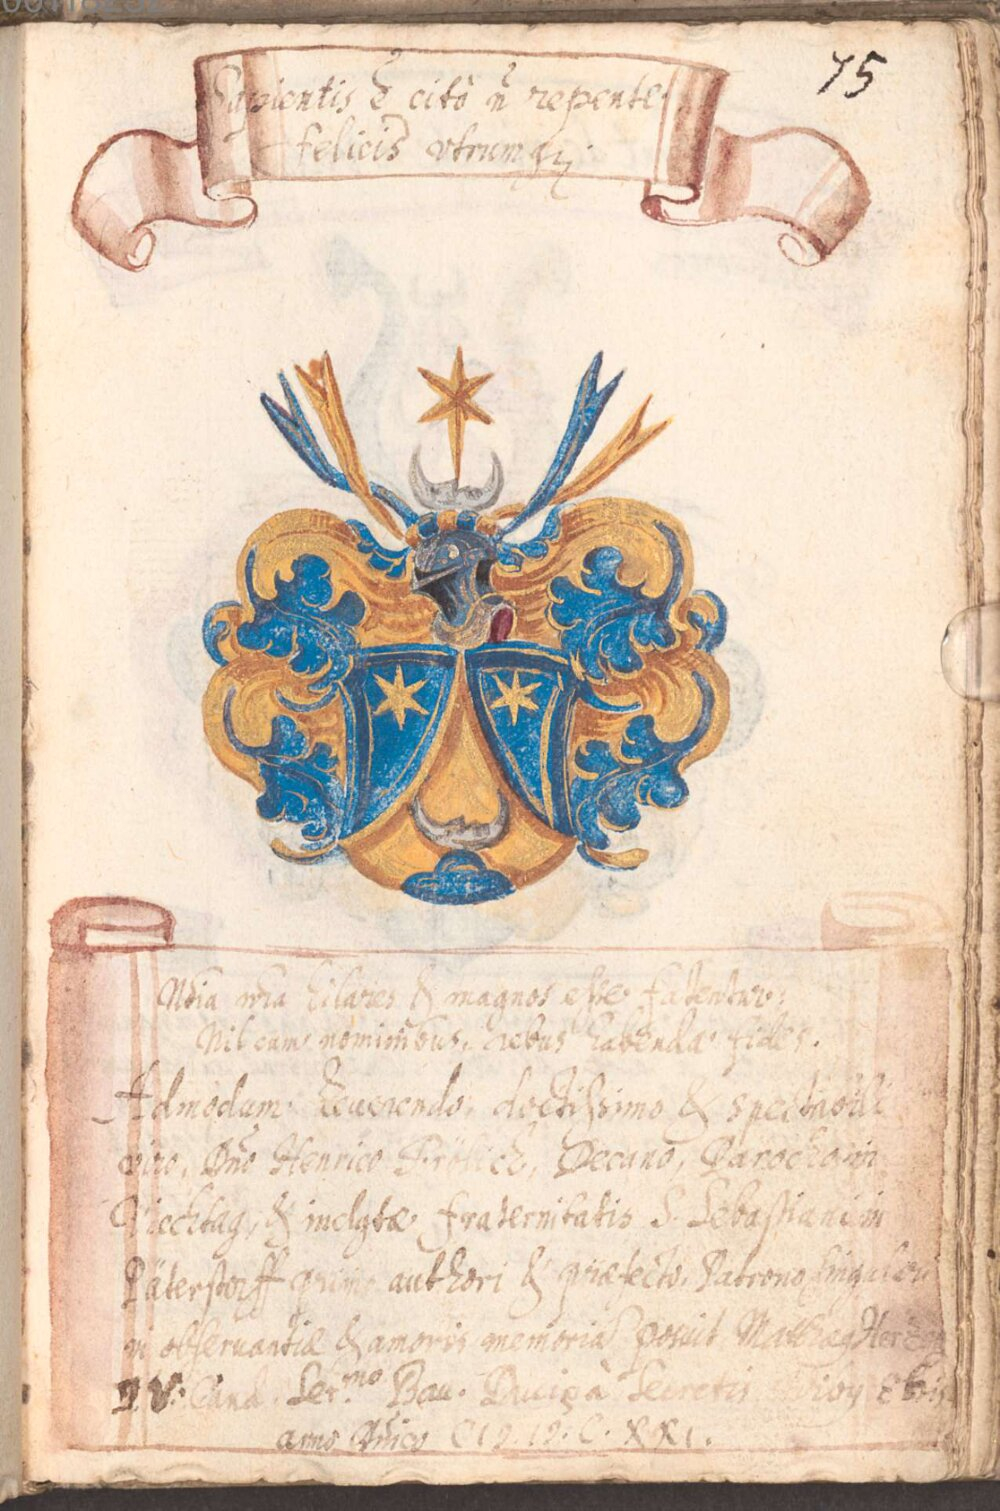 75
Sapientis ẽ citò ñ repente
felicis vtrumq;
Nõia nr̃a hilares & magnos esse fatentur:
Nil cum nominibus, rebus habenda fides.
Admodum Reuerendo, doctissimo & spectabili
viro, Dño Henrico Frölich, Decano, Parocho in
Viechtag, & inclytæ fraternitatis S. Sebastiani in
Päterstorff primo authori & præfecto, Patrono singulari
in obseruantiæ & amoris memoriã posuit Mathias Herzog
I. V. Cand. Ser.mo Bau. Duci à Secretis
anno Chr̃i CIↃ.IↃ.C.XXI.